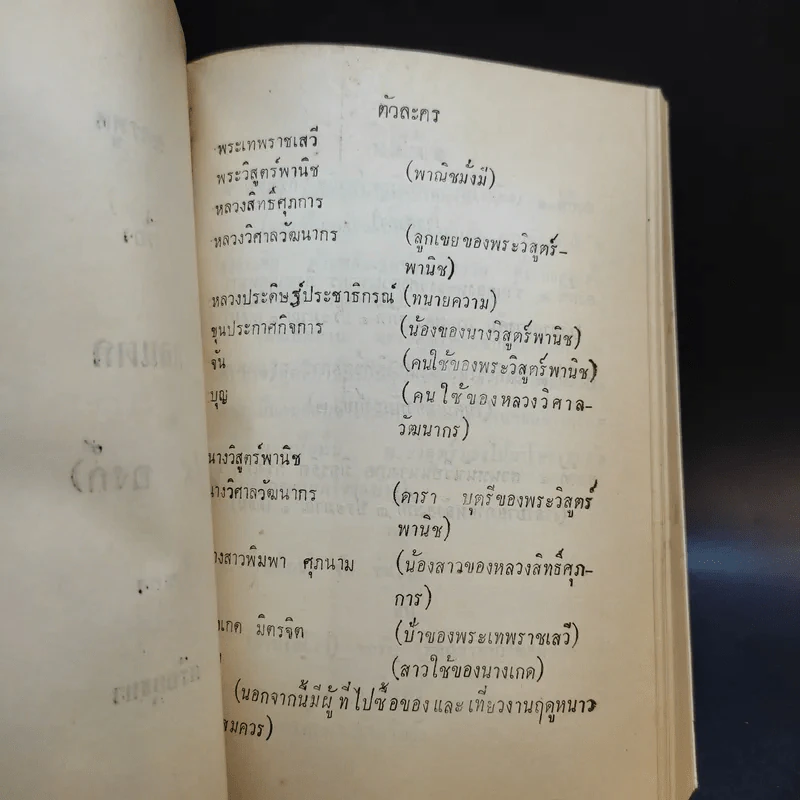 ตัวละคร
พระเทพราชเสวี
พระวิสูตร์พานิช (พาณิชมั่งมี)
หลวงสิทธิ์ศุภการ
หลวงวิศาลวัฒนากร (ลูกเขยของพระวิสูตร์-
พานิช)
หลวงประดิษฐ์ประชาธิกรณ์ (ทนายความ)
ขุนประกาศกิจการ (น้องของนางวิสูตร์พานิช)
จัน (คนใช้ของพระวิสูตร์พานิช)
บุญ (คนใช้ของหลวงวิศาล-
วัฒนากร)
นางวิสูตร์พานิช
นางวิศาลวัฒนากร (ดารา บุตรีของพระวิสูตร์
พานิช)
างสาวพิมพา ศุภนาม (น้องสาวของหลวงสิทธิ์ศุภ-
การ)
เกด มิตรจิต (ป้าของพระเทพราชเสวี)
(สาวใช้ของนางเกด)
(นอกจากนี้มีผู้ที่ไปซื้อของและเที่ยวงานฤดูหนาว
สมควร)